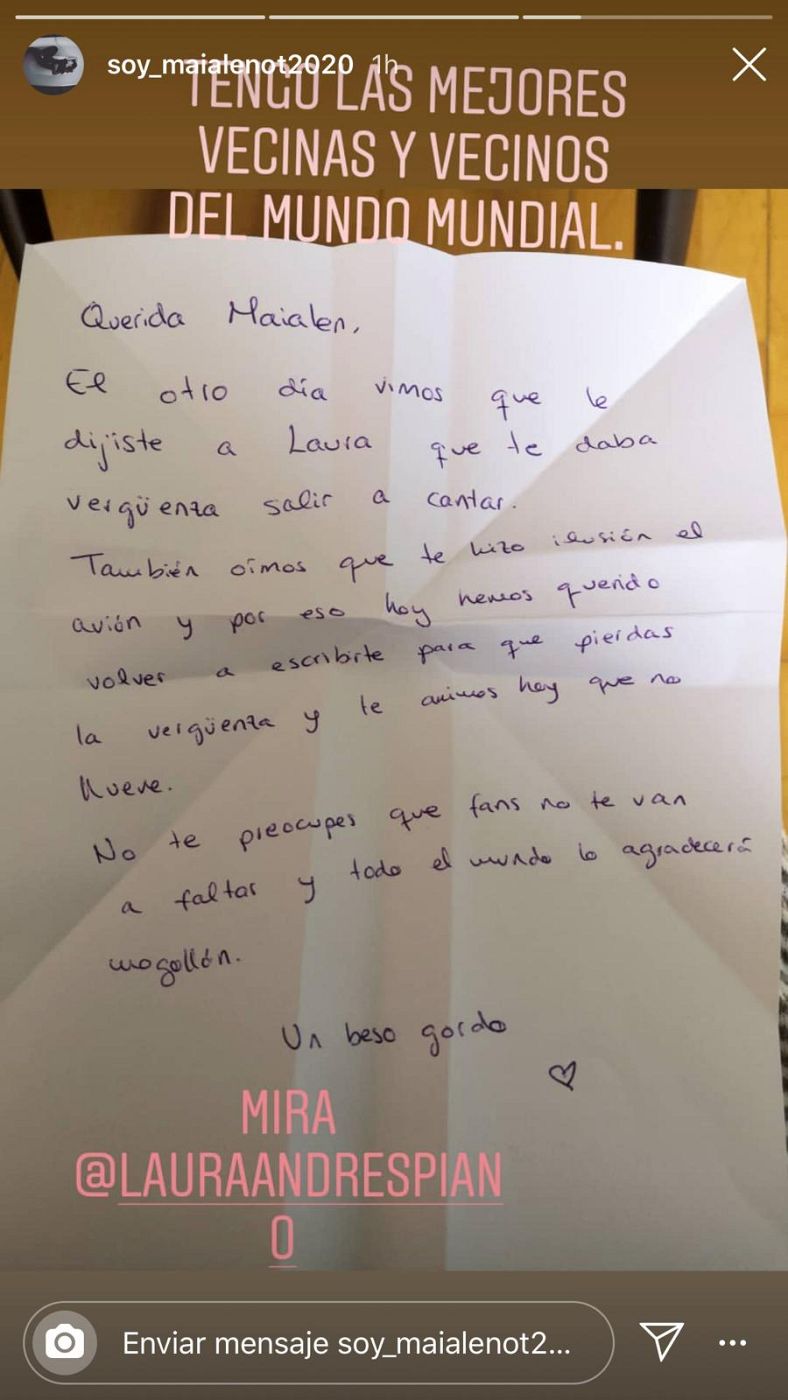 soy_maialenot2020 1h
TENGO LAS MEJORES
VECINAS Y VECINOS
DEL MUNDO MUNDIAL.
Querida Maialen,
El otro día vimos que le
dijiste a Laura que te daba
vergüenza salir a cantar.
También oímos que te hizo ilusión el
avión y por eso hoy hemos querido
volver a escribirte para que pierdas
la vergüenza y te animes hoy que no
llueve.
No te preocupes que fans no te van
a faltar y todo el mundo lo agradecerá
mogollón.
Un beso gordo
MIRA
@LAURAANDRESPIAN
O
Enviar mensaje soy_maialenot2...